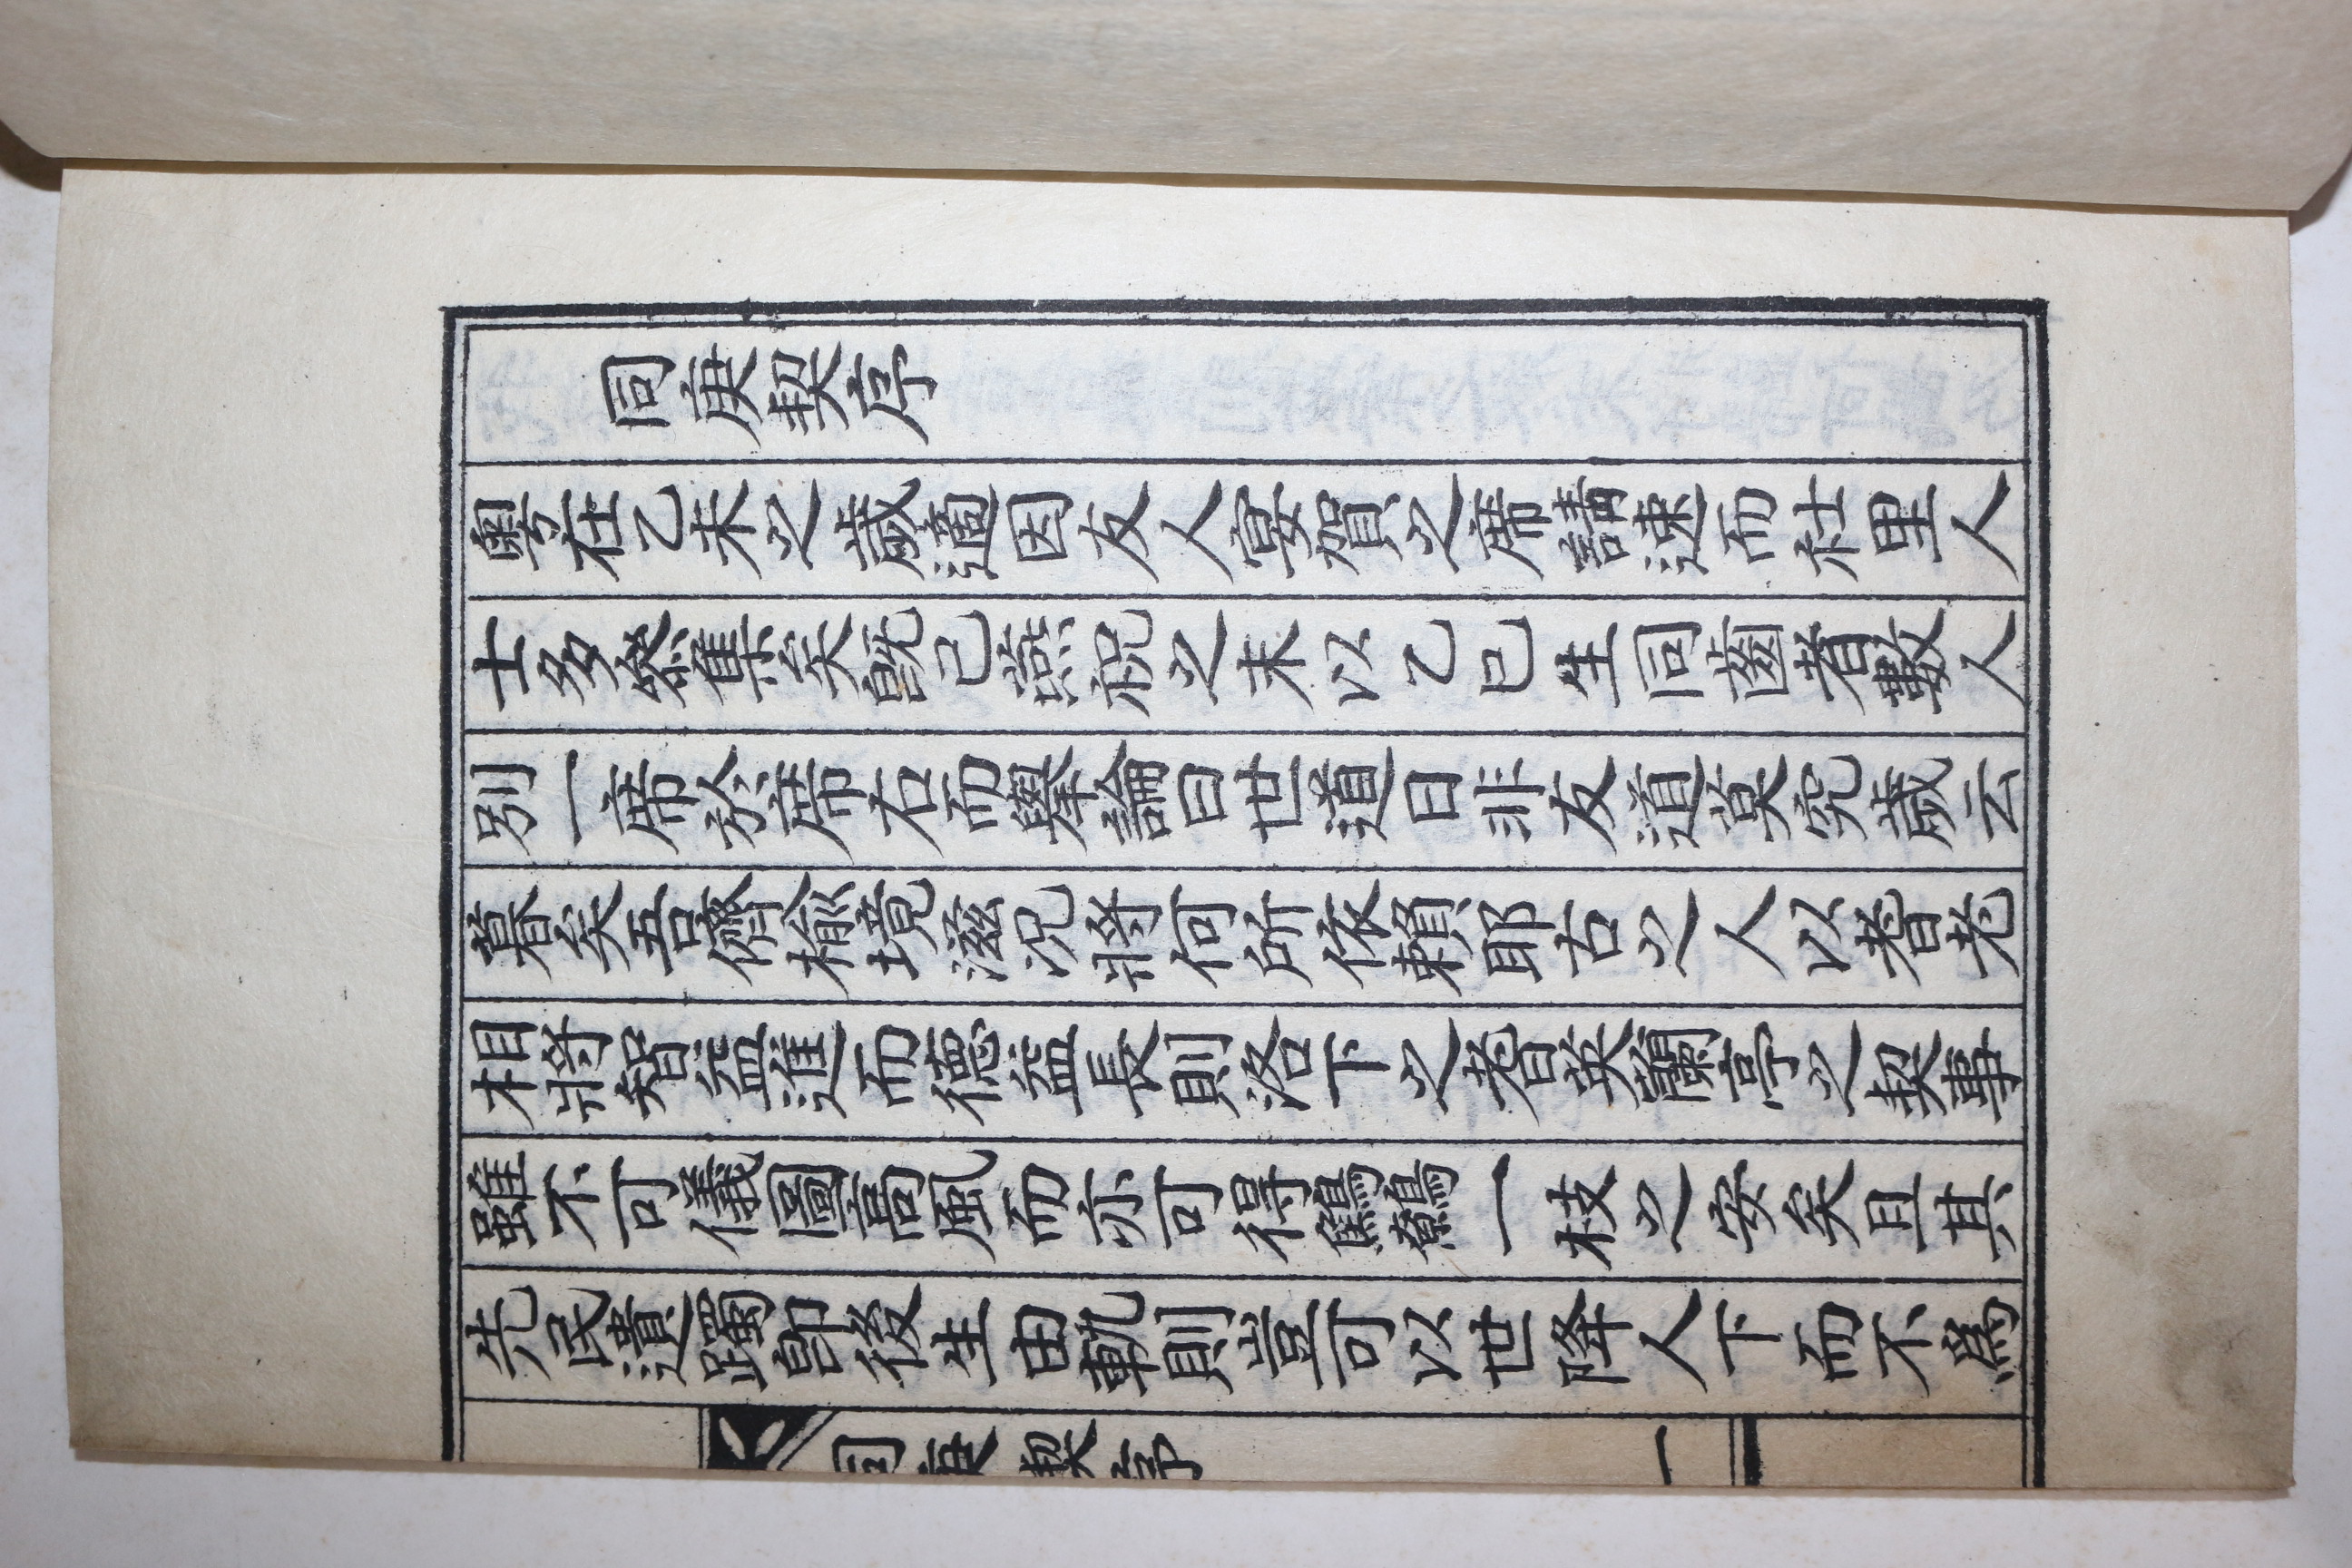 同庚契序
粤在乙未之歲適因友人宴賀之席請速而社里人
士多叅集矣旣已燕祝之末以乙巳生同齒者數人
別一席於席右而擧論曰世道日非友道莫究歲云
暮矣吾儕楡境滋况將何所依賴耶古之人以耆老
相將智益進而德益長則洛下之耆英蘭亭之契事
雖不可儀圖高風而亦可得鷦鷯一枝之安矣且其
先民遺躅卽後生由軌則豈可以世降人下而不爲
同庚契序
一